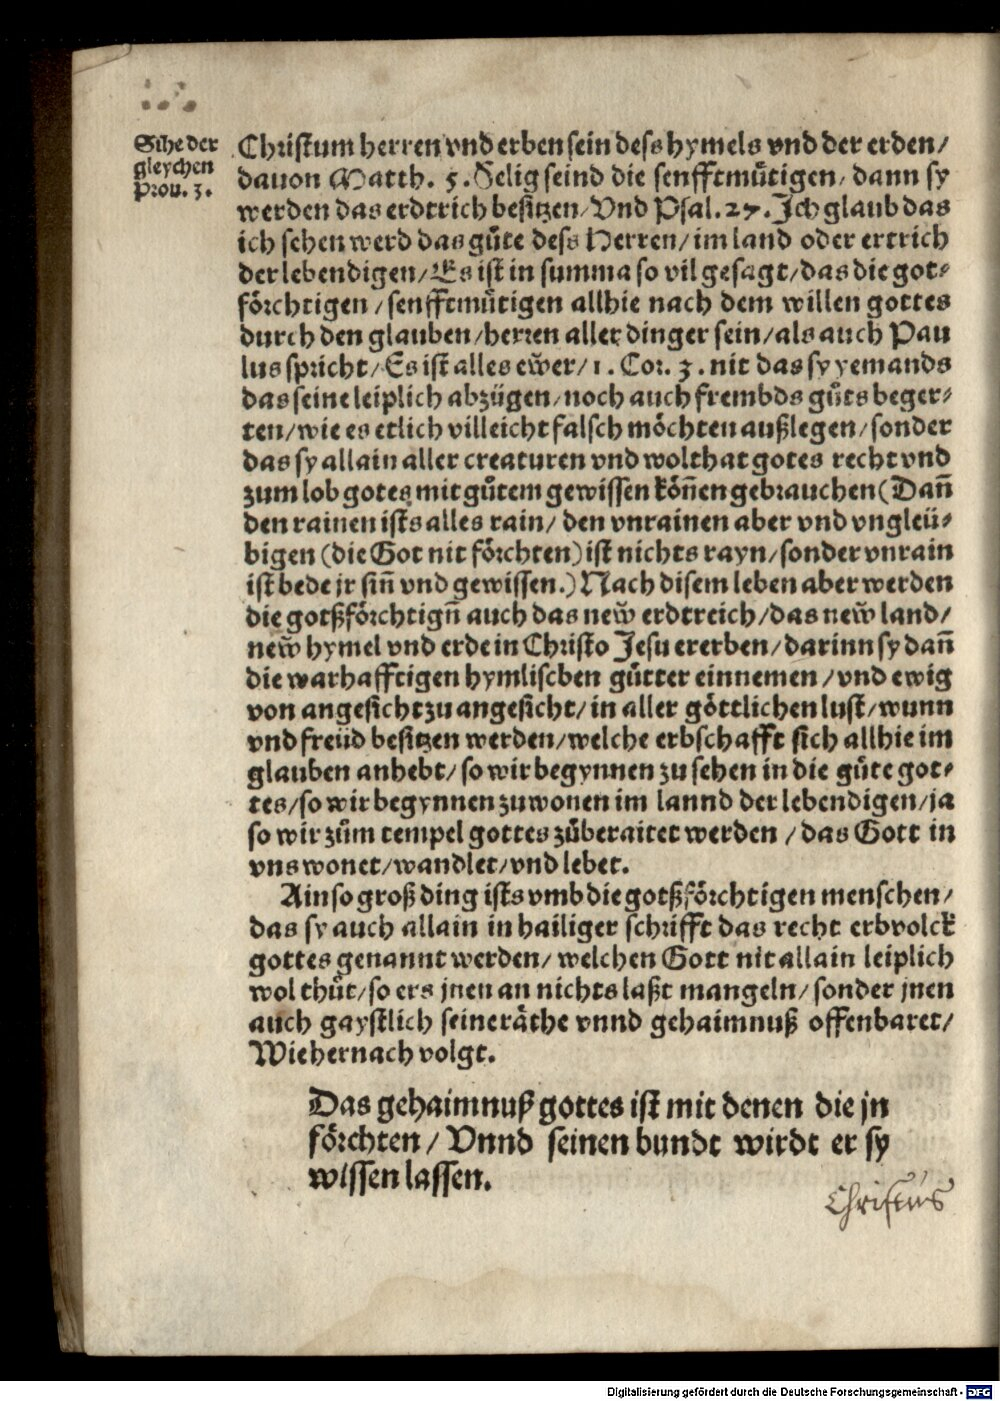 Sihe der
gleychen
Prou. 3.
Christum herren vnd erben sein dess hymels vnd der erden/
dauon Matth. 5. Selig seind die senfftmuͤtigen/ dann sy
werden das erdtrich besitzen/ Vnd Psal. 27. Jch glaub das
ich sehen werd das guͤte dess Herren/ im land oder ertrich
der lebendigen/ Es ist in summa so vil gesagt/ das die got⸗
foͤrchtigen/ senfftmuͤtigen allhie nach dem willen gottes
durch den glauben/ herren aller dinger sein/ als auch Pau
lus spricht/ Es ist alles ewͤer/ 1. Cor. 3. nit das sy yemands
das seine leiplich abzuͤgen/ noch auch frembds guͤts beger⸗
ten/ wie es etlich villeicht falsch moͤchten außlegen/ sonder
das sy allain aller creaturen vnd wolthat gotes recht vnd
zum lob gotes mit guͤtem gewissen koͤn̄en gebrauchen (Dan̄
den rainen ists alles rain/ den vnrainen aber vnd vngleuͤ⸗
bigen (die Got nit foͤrchten) ist nichts rayn/ sonder vnrain
ist bede jr sin̄ vnd gewissen.) Nach disem leben aber werden
die gotßfoͤrchtign̄ auch das newͤ erdtreich/ das newͤ land/
newͤ hymel vnd erde in Christo Jesu ererben/ darinn sy dan̄
die warhafftigen hymlischen guͤtter einnemen/ vnd ewig
von angesicht zu angesicht/ in aller goͤttlichen lust/ wunn
vnd freuͤd besitzen werden/ welche erbschafft sich allhie im
glauben anhebt/ so wir begynnen zu sehen in die guͤte got⸗
tes/ so wir begynnen zuwonen im lannd der lebendigen/ ja
so wir zuͦm tempel gottes zuͦberaitet werden/ das Gott in
vns wonet/ wandlet/ vnd lebet.
Ain so groß ding ists vmb die gotßfoͤrchtigen menschen/
das sy auch allain in hailiger schrifft das recht erbvolck
gottes genannt werden/ welchen Gott nit allain leiplich
wol thuͦt/ so ers jnen an nichts laßt mangeln/ sonder jnen
auch gaystlich seine raͤthe vnnd gehaimnuß offenbaret/
Wie hernach volgt.
Das gehaimnuß gottes ist mit denen die jn
foͤrchten/ Vnnd seinen bundt wirdt er sy
wissen lassen.
Christus
Digitalisierung gefördert durch die Deutsche Forschungsgemeinschaft - DFG